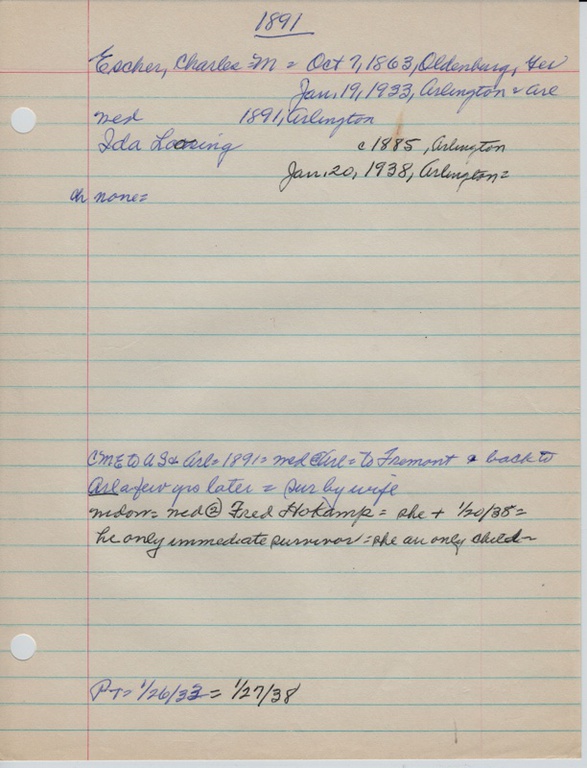 1891
Escher, Charles M = Oct 7, 1863, Oldenburg, Ger
Jan. 19, 1933, Arlington = Arl
med 1891, Arlington
Ida c 1885, Arlington
Jan. 20, 1938, Arlington =
ch none =
CME to US & Arl = 1891 = med @ Arl = to Fremont & back to
Arl a few yrs later = sur by wife
widow = med ② Fred Hokamp = she + 1/20/38 =
he only immediate survivor = she an only child =
PT = 1/26/33 = 1/27/38